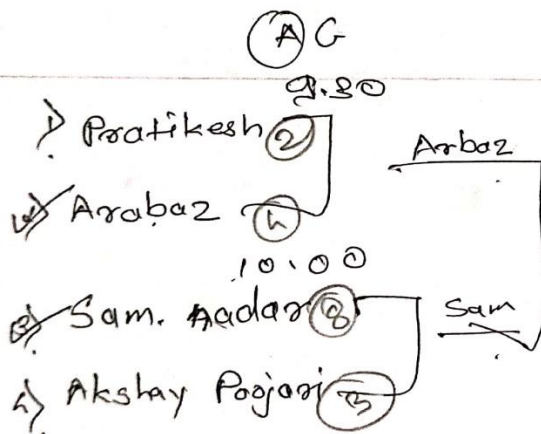 A G
9.30
1) Pratikesh 2
Arabaz 4
Arbaz
10.00
3) Sam. Aadar 8
Sam
4) Akshay Poojari